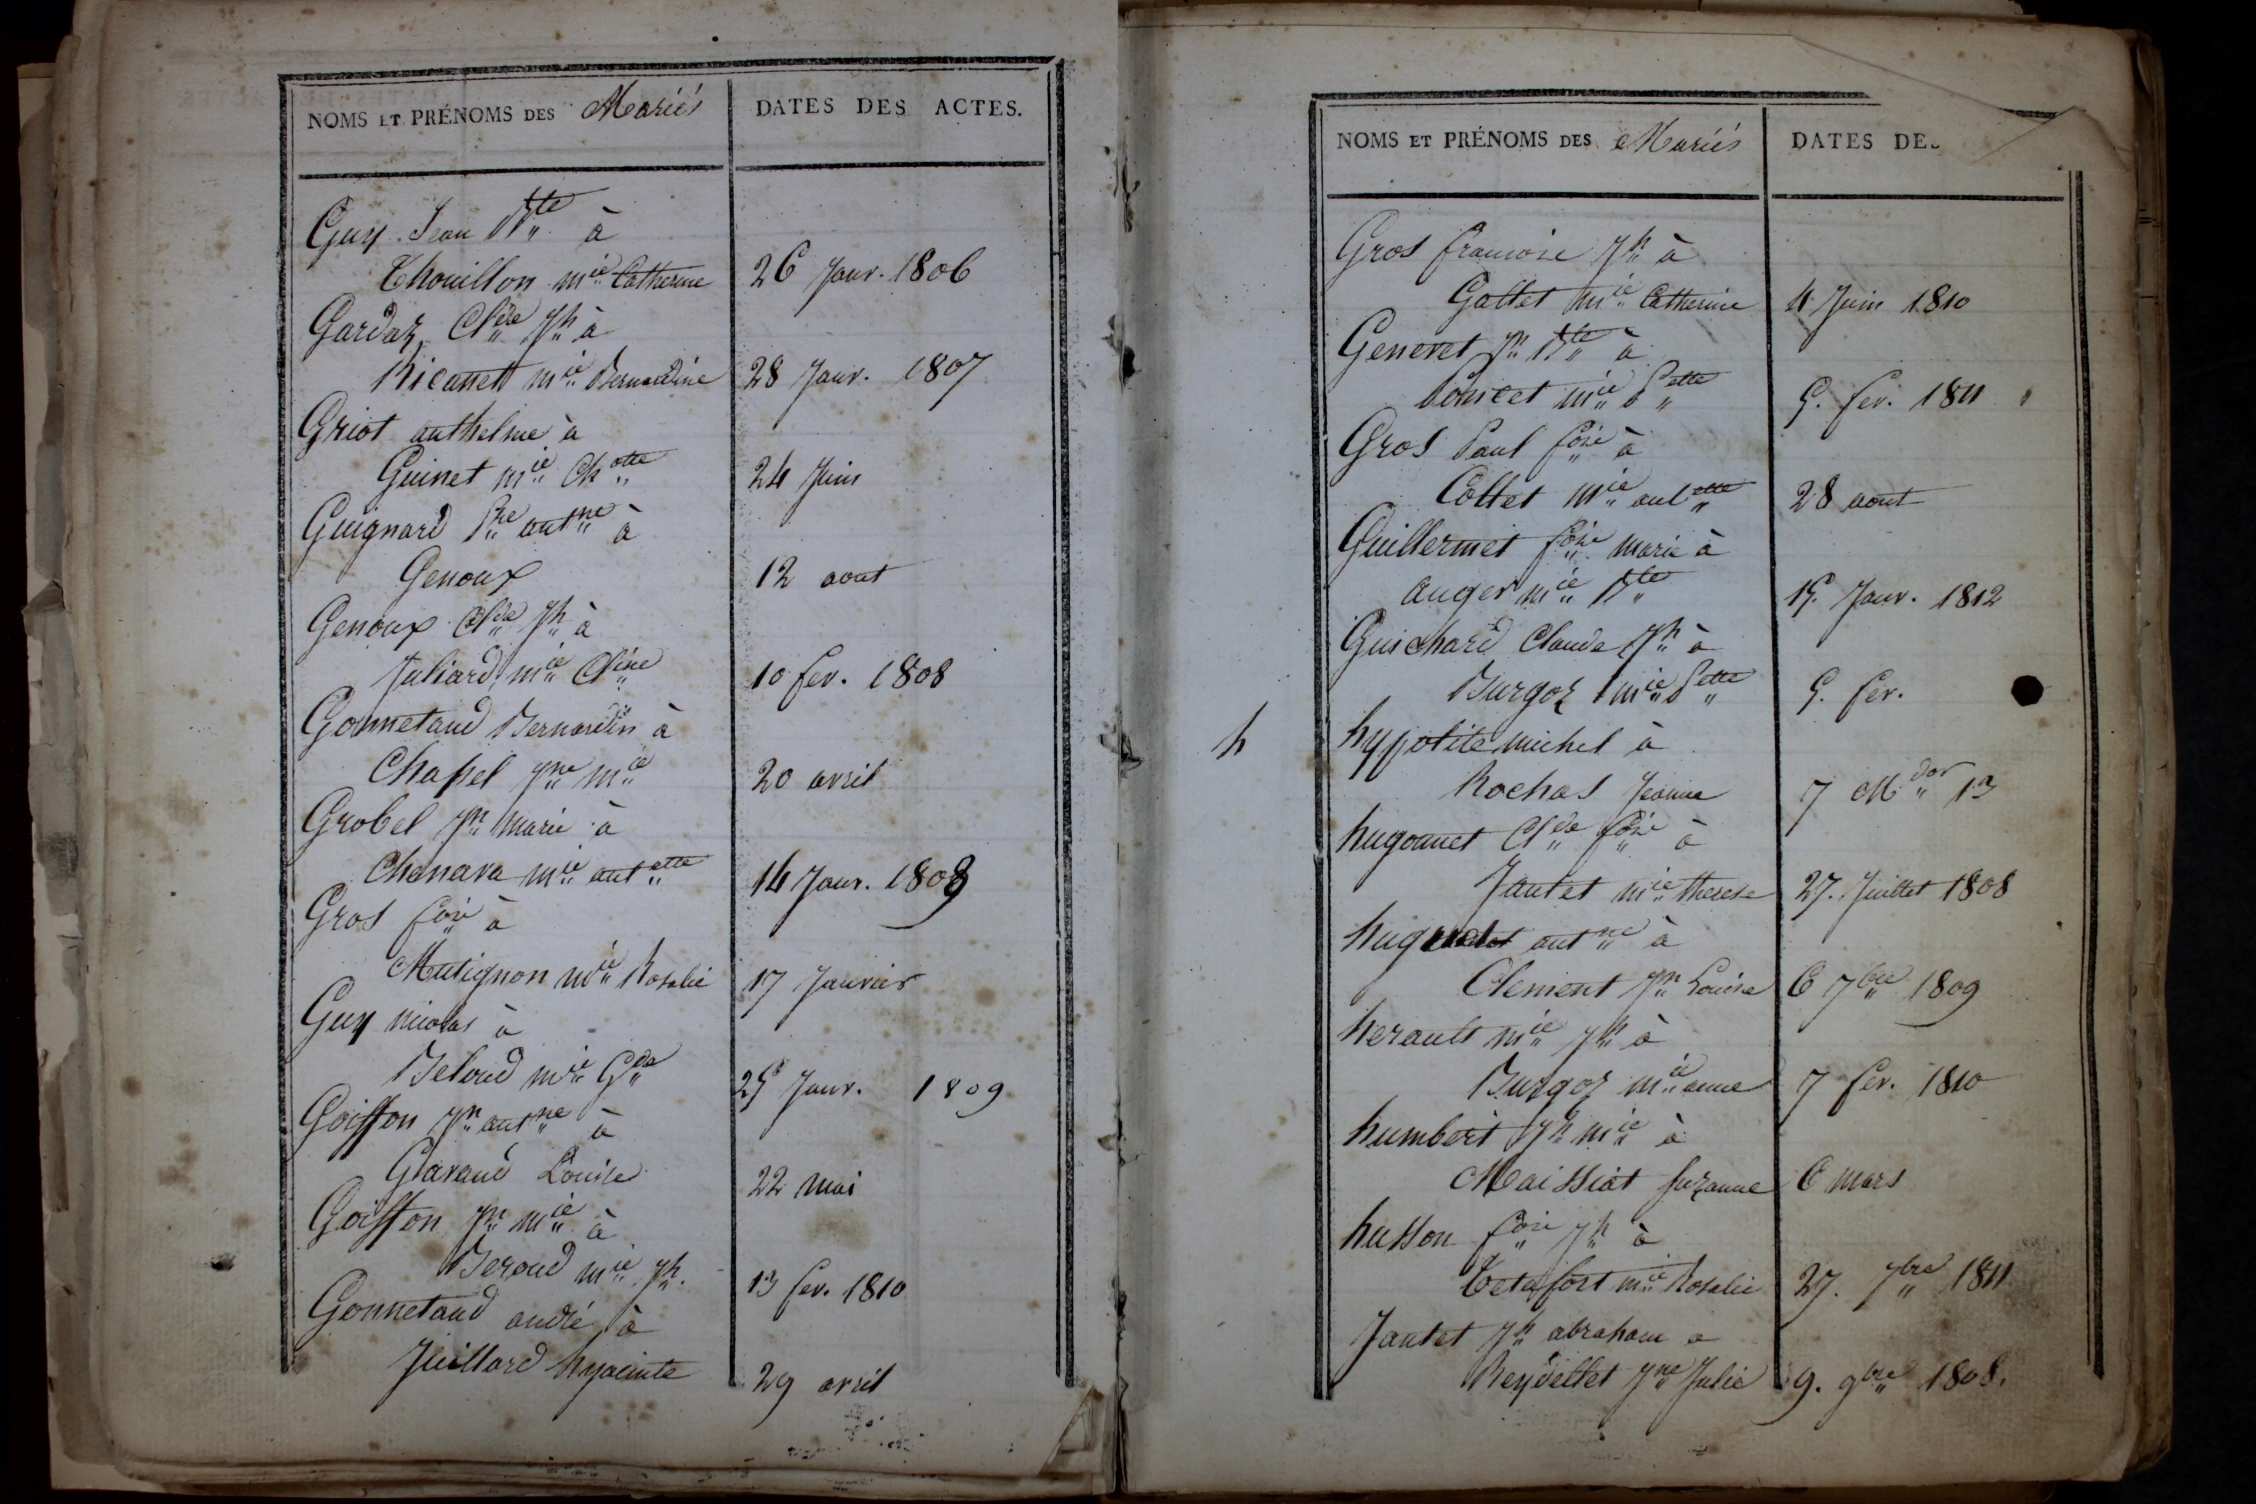 NOMS ET PRÉNOMS DES Mariés
DATES DES ACTES.
Guy Jean Bte à
Thouillon mie Catherine 26 Janv. 1806
Gardaz Clde Jh à
Ricanet mie Bernardine 28 Janv. 1807
Griot anthelme à
Guinet mie Chotte 24 Juin
Guignard Pre antne à
Genoux 12 aout
Genoux Clde Jh à
Juliard mie Cline 10 fev. 1808
Gonnetaud Bernardin à
Chapel Jne mie 20 avril
Grobel Jn marie à
Chanara mie antette 14 Janv. 1808
Gros fois à
Mutignon mie Rosalie 17 Janvier
Guy nicolas à
Beloud mie Gde 25 Janv. 1809
Goiffon Jn antne à
Gavand Louise 22 mai
Goiffon Jn mie à
Beroud mie Jh. 13 fev. 1810
Gonnetaud andré à
Juillard hyacinte 29 avril
NOMS ET PRÉNOMS DES Mariés
DATES DES
Gros francois Jh à
Gallet mie Catherine 4 Juin 1810
Genevet Jn Bte à
poncet mie Pette 5. fev. 1811
Gros Paul fois à
Collet mie antette 28 aout
Guillermet fois marie à
auger mie Bte 15. Janv. 1812
Guichard Claude Jh à
Burgoz mie Pette 5. fev.
h
hypolite michel à
Rochas Jeanne 7 Mdor 13
hugonnet Clde fois à
Jantet mie therese 27. Juillet 1808
antne à
Clement Jne Louise 6 7bre 1809
herault mie Jh à
Burgoz mie anne 7 fev. 1810
humbert Jh mie à
Maissiat suzanne 6 mars
husson fois Jh à
Tetafort mie Rosalie 27. 7bre 1811
Jantet Jh abraham a
Reydellet Jne Julie 9. 9bre 1808.